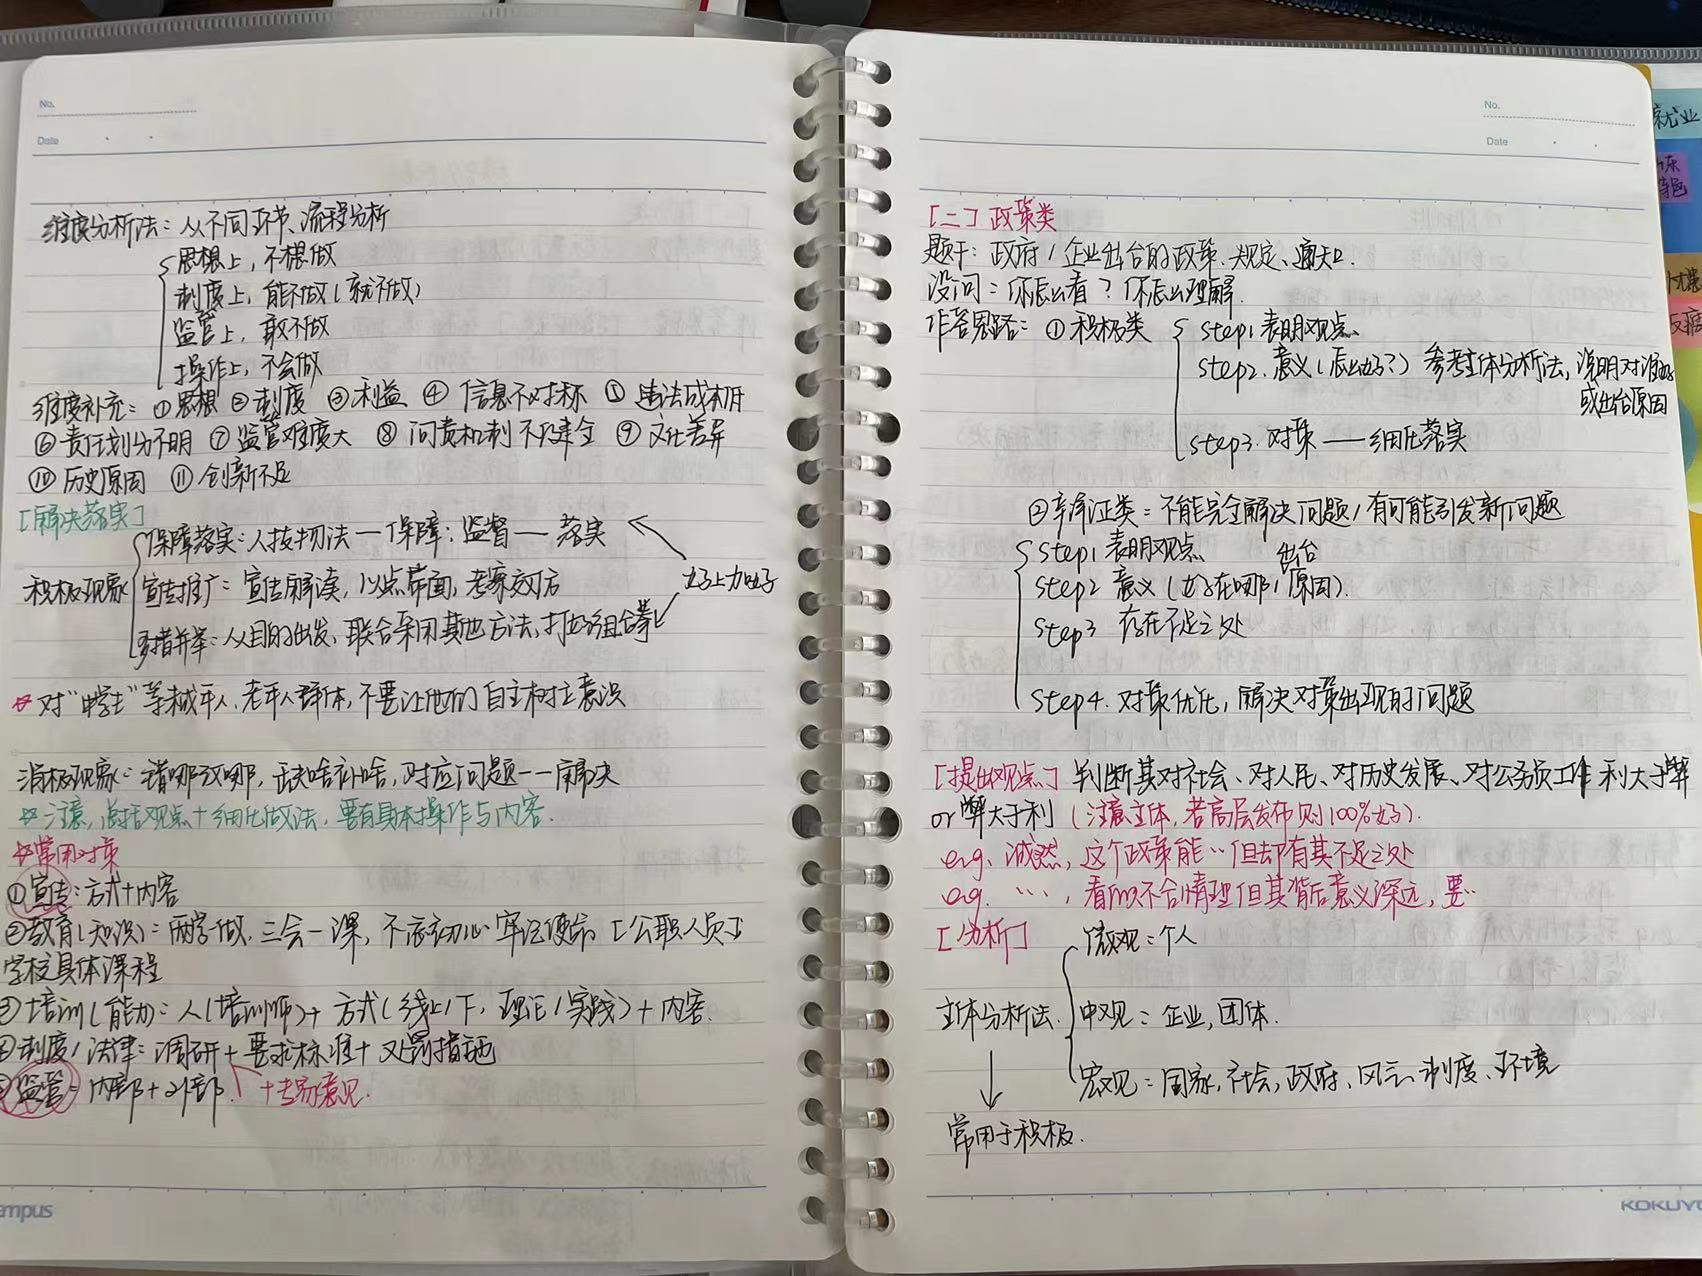 No.
Date
维度分析法：从不同环节、流程分析
思想上，不想做
制度上，能不做（就不做）
监管上，敢不做
操作上，不会做
维度补充：①思想 ②制度 ③利益 ④ 信息不对称 ⑤ 违法成本低
⑥责任划分不明 ⑦监管难度大 ⑧ 问责机制不健全 ⑨文化差异
⑩历史原因 ⑪创新不足
［解决落实］
积极现象
保障落实：人技物法—保障；监督—落实
宣传推广：宣传解读，以点带面，考察效仿
多措并举：从目的出发，联合采用其他方法，打好组合拳
好上加好
☆对“中学生”等未成年人、老年人群体，不要让他们自主树立意识
消极现象：错哪改哪，缺啥补啥，对应问题一一解决
☆注意，总括观点+细化做法，要有具体操作与内容.
☆常用对策
①宣传：方式+内容
②教育（知识）：两学一做，三会一课，不忘初心 牢记使命［公职人员］
学校具体课程
③培训（能力）：人（培训师）+ 方式（线上/下，理论/实践）+ 内容.
④制度/法律：调研+要求标准+处罚措施
⑤监管：内部+外部.
+专家意见.
Campus
No.
Date
［二］政策类
题干：政府/企业出台的政策、规定、通知.
设问：你怎么看？你怎么理解.
作答思路：①积极类
step1 表明观点.
step2. 意义（怎么好？）参考主体分析法，说明对谁好
或出台原因
step3. 对策——细化落实
②辛辩证类：不能完全解决问题/有可能引发新问题
step1 表明观点
出台
step2 意义（好在哪/原因）.
step3 存在不足之处
step4. 对策优化，解决对策出现的问题
［提出观点］判断其对社会、对人民、对历史发展、对公务员工作 利大于弊
or弊大于利（注意立体，若高层发布则100%好）.
eg. 诚然，这个政策能…但却有其不足之处
eg. …，看似不合情理但其背后意义深远，要…
［分析］
微观：个人
主体分析法.
中观：企业，团体.
宏观：国家，社会，政府、风气、制度、环境
常用于积极.
KOKUYO
就业
特色